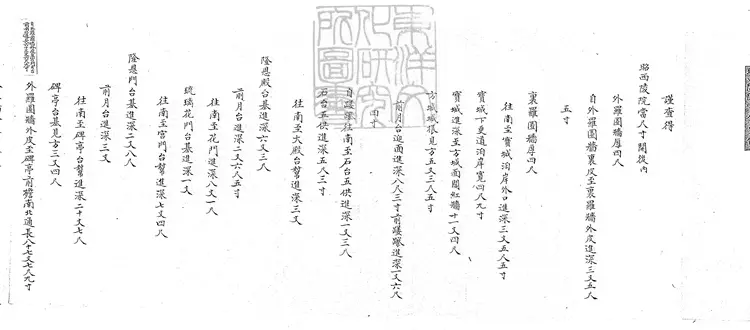 謹查得
昭西陵院當尺寸開後內
外羅圈牆厚四尺
自外羅圈牆裏皮至裏羅牆外皮進深三丈五尺
五寸
裏羅圈牆厚四尺
往南至寶城泊岸外口進深三丈五尺五寸
寶城下更道泊岸寬四尺九寸
寶城進深至方城面闊紅牆十一丈四尺
方城城根見方五丈三尺五寸
前月台迎面進深八尺三寸前進深一丈六尺
四寸
自往南至石台五供進深一丈三尺
石台五供進深五尺三寸
往南至大殿台幫進深三丈
隆恩殿台基進深六丈三尺
前月台進深二丈六尺五寸
往南至花門進深八丈一尺
琉璃花門台基進深一丈
往南至宮門台幫進深七丈四尺
隆恩門台基進深二丈八尺
前月台進深三丈
往南至碑亭台幫進深二十丈七尺
碑亭台基見方三丈四尺
外羅圈牆外皮至碑亭前簷南北通長八十七丈七尺九寸
東洋文
化研究
所圖書